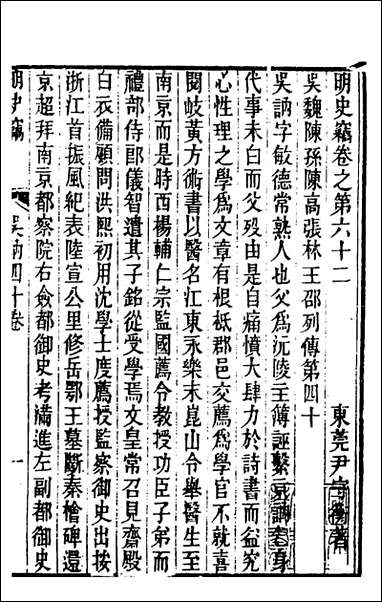 明史竊卷之第六十二
東莞尹守衡著
吳魏陳孫陳高張林王邵列傳第四十
吳訥字敏德常熟人也父為沅陵主簿誣繫京訥乞身
代事未白而父歿由是自痛憤大肆力於詩書而益究
心性理之學為文章有根柢郡邑交薦為學官不就喜
閱岐黃方術書以醫名江東永樂末崑山令舉醫生至
南京而是時西楊輔仁宗監國薦令教授功臣子弟而
禮部侍郎儀智遣其子銘從受學焉文皇常召見齋殿
白衣備顧問洪熙初用沈學士度薦授監察御史出按
浙江首振風紀表陸宣公里修岳鄂王墓斷秦檜碑還
京超拜南京都察院右僉都御史考滿進左副都御史
明史竊
吳訥四十卷
一